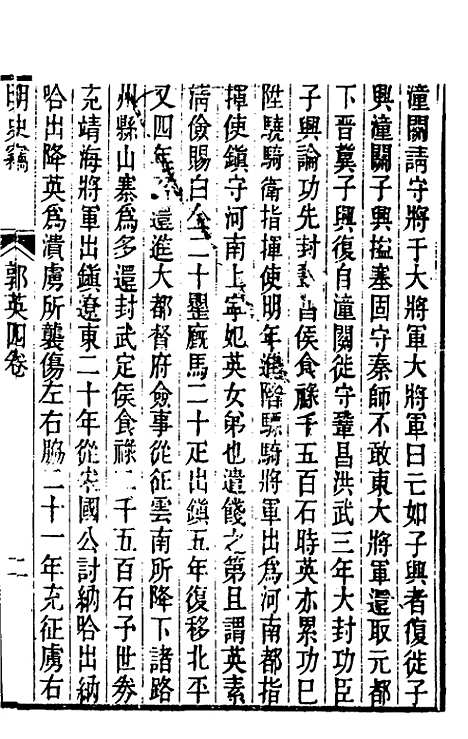 潼關請守將于大將軍大將軍曰亡如子興者復徙子
興潼關子興搤塞固守秦師不敢東大將軍還取元都
下晉冀子興復自潼關徙守鞏昌洪武三年大封功臣
子興論功先封鞏昌侯食祿千五百石時英亦累功已
陞驍騎衛指揮使明年進階驃騎將軍出為河南都指
揮使鎮守河南上寧妃英女弟也遣餞之第且謂英素
清儉賜白金二十罌廐馬二十疋出鎮五年復移北平
又四年 還進大都督府僉事從征雲南所降下諸路
州縣山寨為多還封武定侯食祿二千五百石予世券
充靖海將軍出鎮遼東二十年從宋國公討納哈出納
哈出降英為潰虜所襲傷左右脇二十一年充征虜右
明史竊 郭英四卷 二